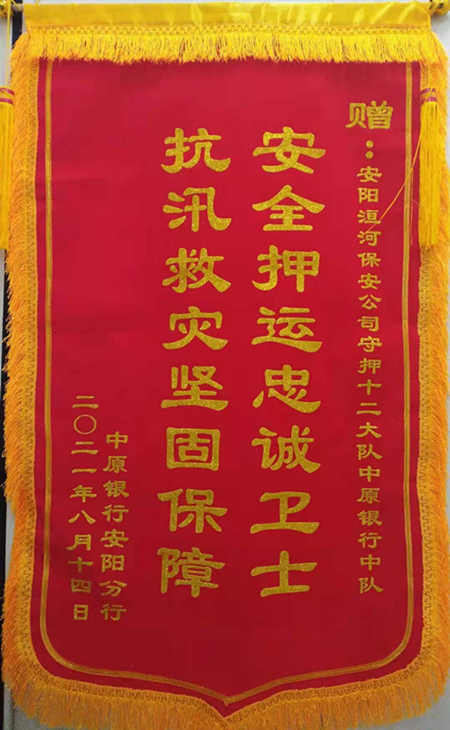 赠：安阳洹河保安公司守押十二大队中原银行中队
安全押运忠诚卫士
抗汛救灾坚固保障
中原银行安阳分行
二〇二一年八月十四日